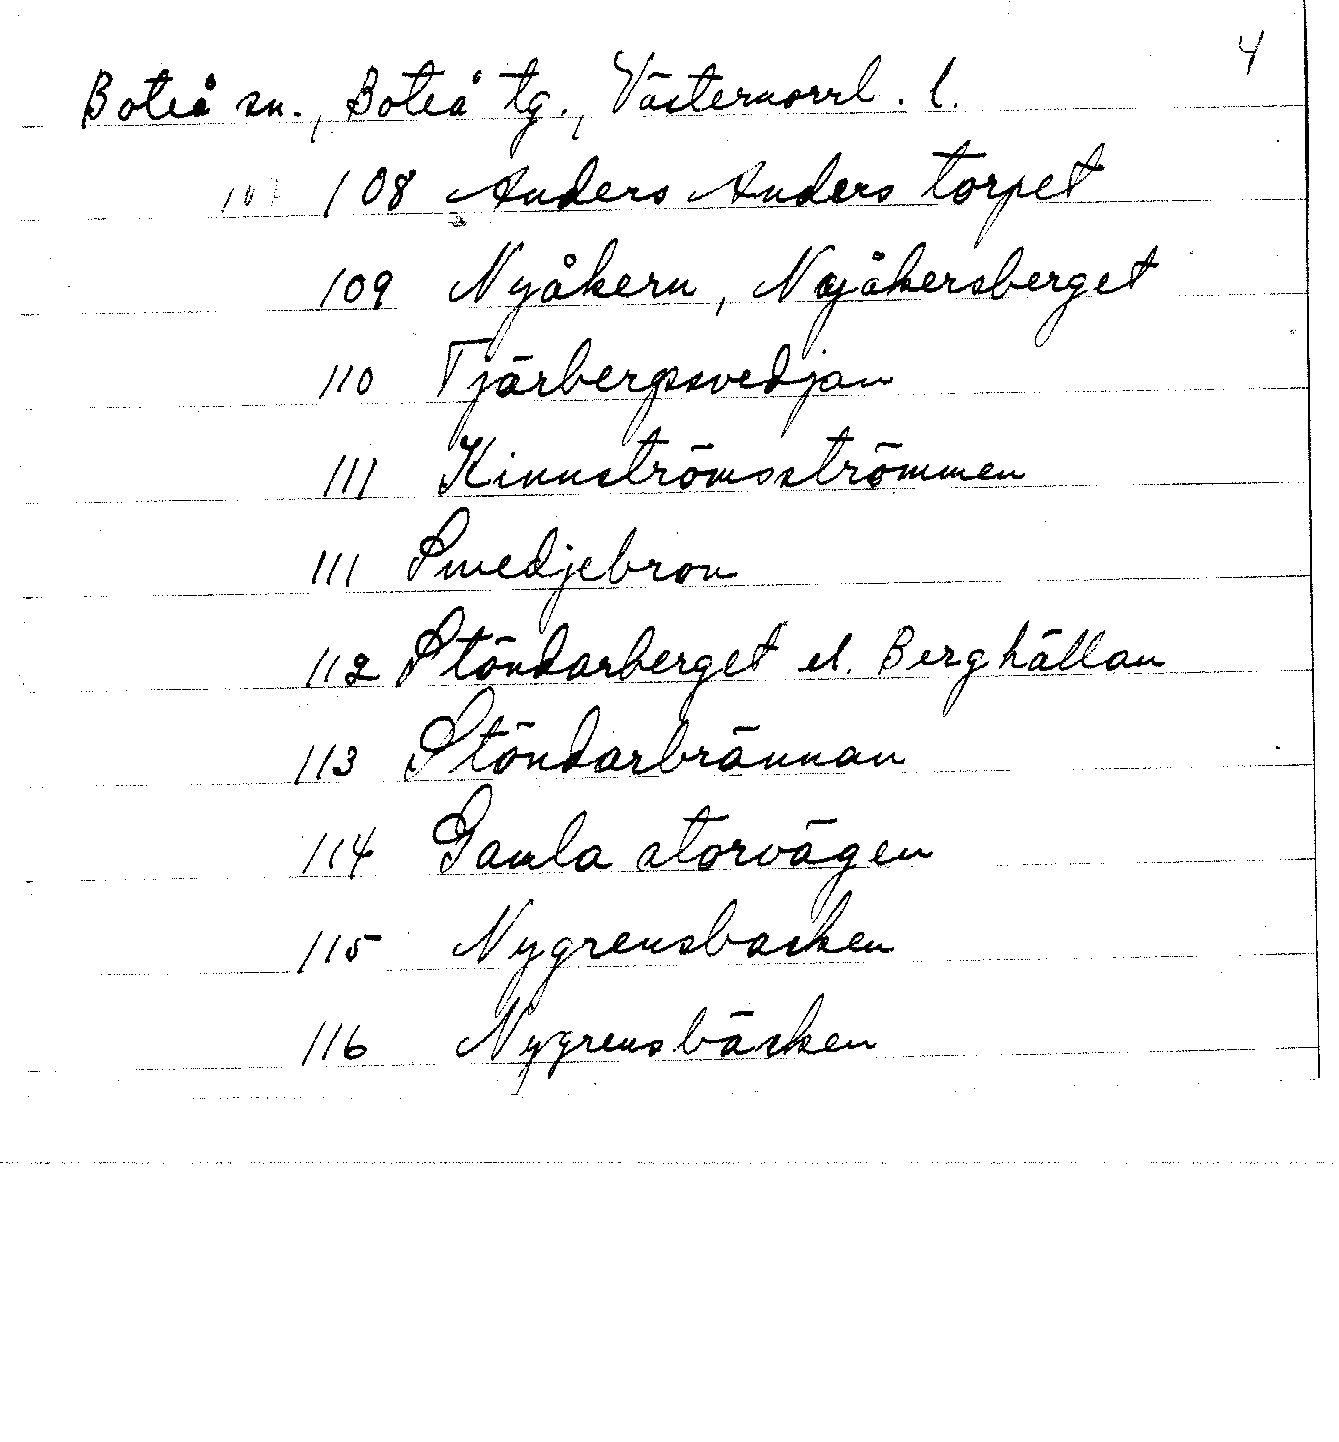 4
Boteå sn., Boteå tg., Västernorrl. l.
108 Anders Anders torpet
109 Nyåkern, Nyåkersberget
110 Tjärbergssvedjan
111 Kinnströmsströmmen
111 Smedjebron
112 Stöndarberget el. Berghällan
113 Stöndarbrännan
114 Gamla storvägen
115 Nygrensbacken
116 Nygrensbäcken